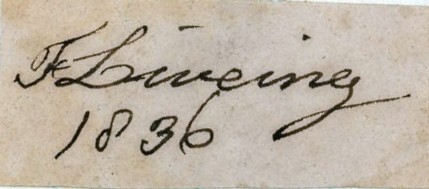 F Liveing
1836